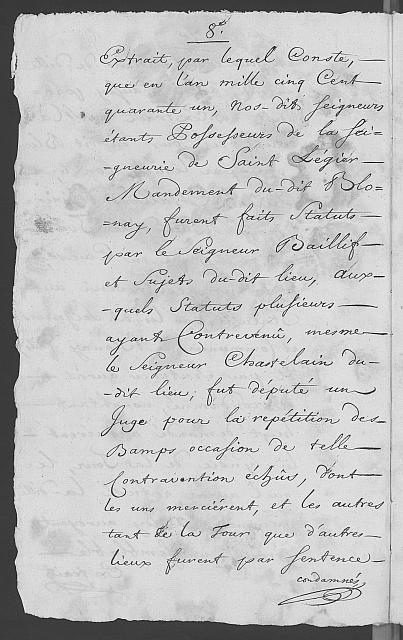 8.e
Extrait, par lequel Conste, —
que en l'an mille cinq Cent
quarante un, Nos-dits Seigneurs
étants Possesseurs de la Sei-
-gneurie de Saint Légier —
Mandement du-dit Blo-
-nay, furent faits Statuts —
par le Seigneur Baillif —
et Sujets du-dit lieu, aux-
-quels Statuts plusieurs —
ayant Contrevenû, mesme
le Seigneur Chastelain du-
-dit lieu; fut député un
Juge pour la repétition des
Bamps occasion de telle —
Contravention échûs, dont
les uns merciérent, et les autres
tant de la Tour que d'autres
lieux furent par Sentence —
condamnés